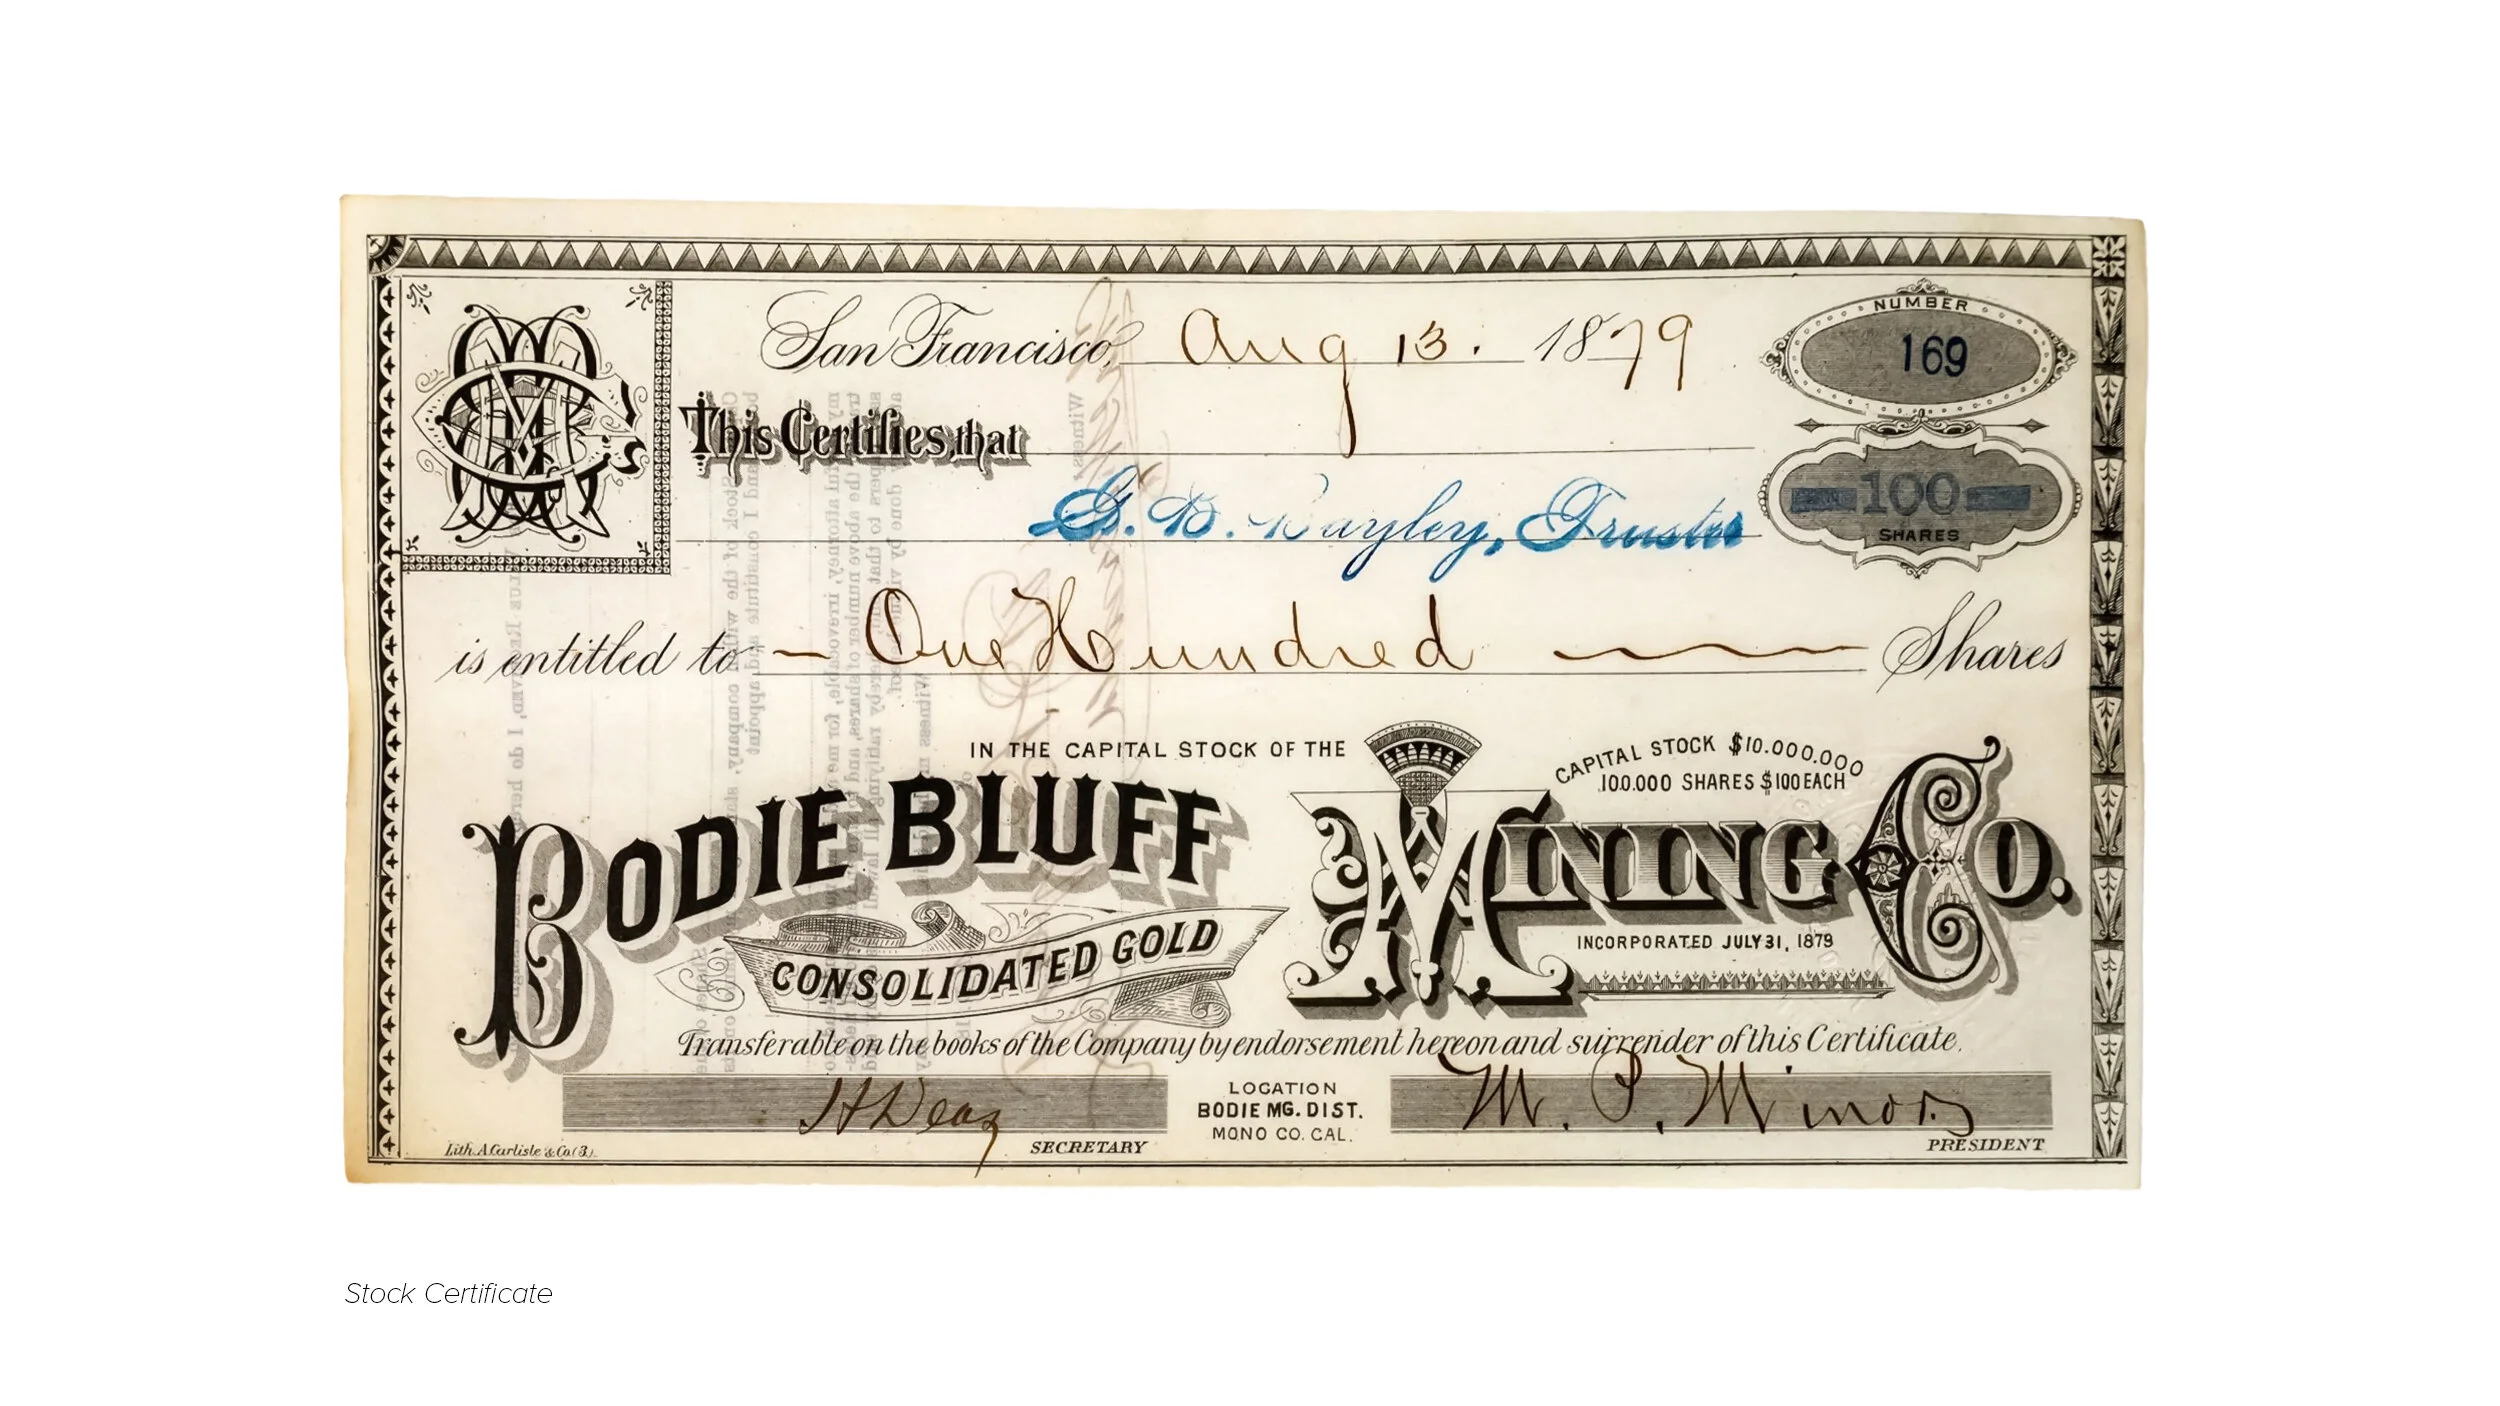 San Francisco, Aug 13. 1879
NUMBER
169
This Certifies, that
G. B. Bayley, Trustee
100
SHARES
is entitled to — One Hundred — Shares
IN THE CAPITAL STOCK OF THE
CAPITAL STOCK $10.000.000
100.000 SHARES $100 EACH
BODIE BLUFF
CONSOLIDATED GOLD
MINING CO.
INCORPORATED JULY 31, 1879
Transferable on the books of the Company by endorsement hereon and surrender of this Certificate.
LOCATION
BODIE MG. DIST.
MONO CO. CAL.
H Deas
SECRETARY
M. P. Minor
PRESIDENT
Lith. A. Carlisle & Co.
Stock Certificate